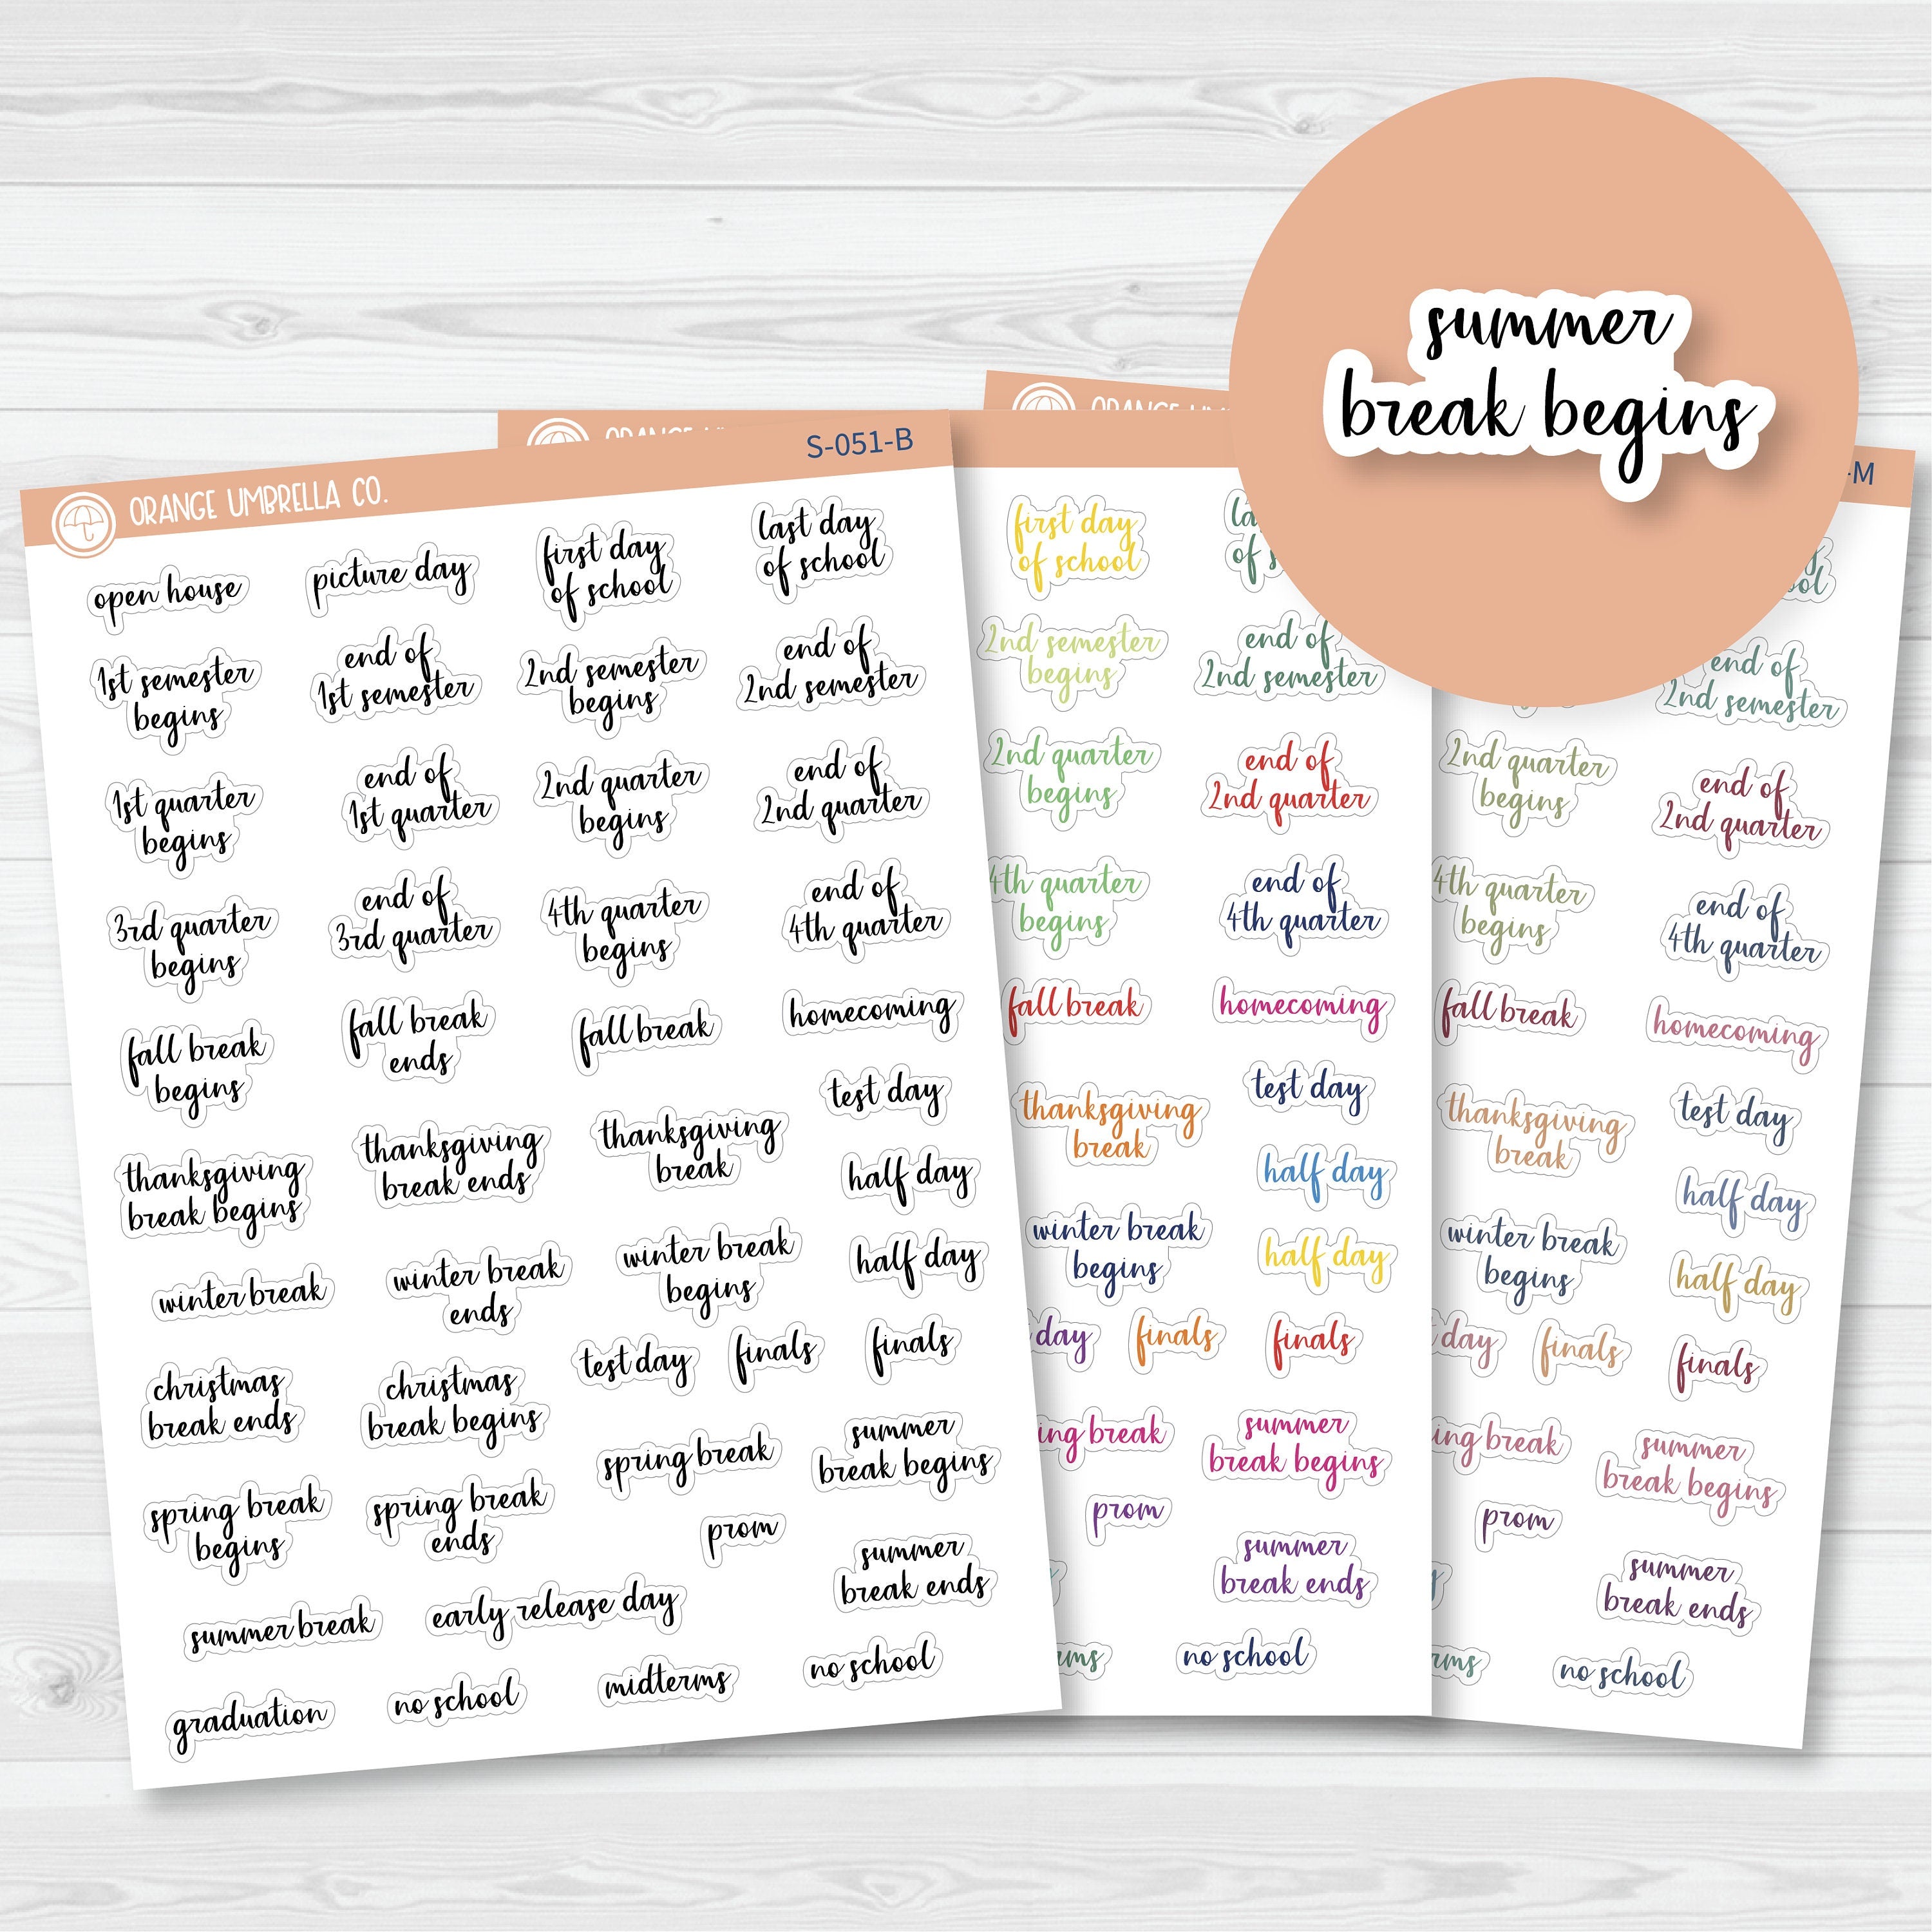 summer
break begins
ORANGE UMBRELLA CO.
S-051-B
open house
picture day
first day
of school
last day
of school
1st semester
begins
end of
1st semester
2nd semester
begins
end of
2nd semester
1st quarter
begins
end of
1st quarter
2nd quarter
begins
end of
2nd quarter
3rd quarter
begins
end of
3rd quarter
4th quarter
begins
end of
4th quarter
fall break
begins
fall break
ends
fall break
homecoming
test day
thanksgiving
break begins
thanksgiving
break ends
thanksgiving
break
half day
winter break
winter break
ends
winter break
begins
half day
christmas
break ends
christmas
break begins
test day
finals
finals
spring break
summer
break begins
spring break
begins
spring break
ends
prom
summer
break ends
summer break
early release day
graduation
no school
midterms
no school
ORANGE
first day
of school
of
2nd semester
begins
end of
2nd semester
2nd quarter
begins
end of
2nd quarter
4th quarter
begins
end of
4th quarter
fall break
homecoming
thanksgiving
break
test day
half day
winter break
begins
half day
day
finals
finals
break
summer
break begins
prom
summer
break ends
no school
ORANGE
-M
end of
2nd semester
2nd quarter
begins
end of
2nd quarter
4th quarter
begins
end of
4th quarter
fall break
homecoming
thanksgiving
break
test day
half day
winter break
begins
half day
day
finals
finals
break
summer
break begins
prom
summer
break ends
no school